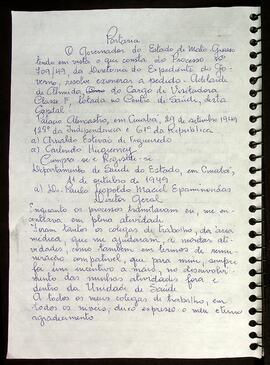 Portaria
O Governador do Estado de Mato Grosso
tendo em vista o que consta do Processo nº
709/49 da Diretoria do Expediente do Go-
verno, resolve exonerar a pedido - Adelaide
de Almeida do Cargo de Visitadora
Classe F, lotada no Centro de Saúde, desta
Capital.
Palácio Alencastro, em Cuiabá, 29 de setembro 1949
128º da Independência e 61º da República
a) Arnaldo Estevão de Figueiredo
a)
Cumpra-se e Registre-se
Departamento de Saúde do Estado, em Cuiabá,
1º de outubro 1949
a) Dr. Paulo Leopoldo Maciel Epaminondas
Diretor Geral
Enquanto os processos tramitavam eu, me en-
contrava em plena atividade.
Foram tantos os colegas de trabalho, da área
médica, que me ajudaram, a nortear ati-
vidades, como também em termos de remu-
neração compatível, que para mim, sempre
foi um incentivo a mais, no desenvolvi-
mento das minhas atividades fora e
dentro da Unidade de Saúde.
A todos os meus colegas de trabalho, em
todos os níveis, deixo expresso o meu eterno
agradecimento.